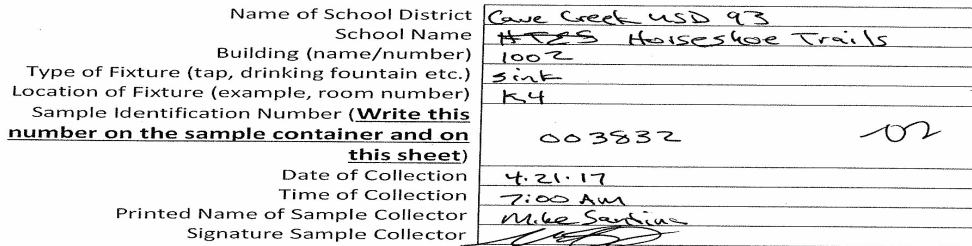 Name of School District Cave Creek USD 93
School Name HTES Horseshoe Trails
Building (name/number) 1002
Type of Fixture (tap, drinking fountain etc.) sink
Location of Fixture (example, room number) K4
Sample Identification Number (Write this
number on the sample container and on 003832 02
this sheet)
Date of Collection 4.21.17
Time of Collection 7:00 AM
Printed Name of Sample Collector Mike
Signature Sample Collector